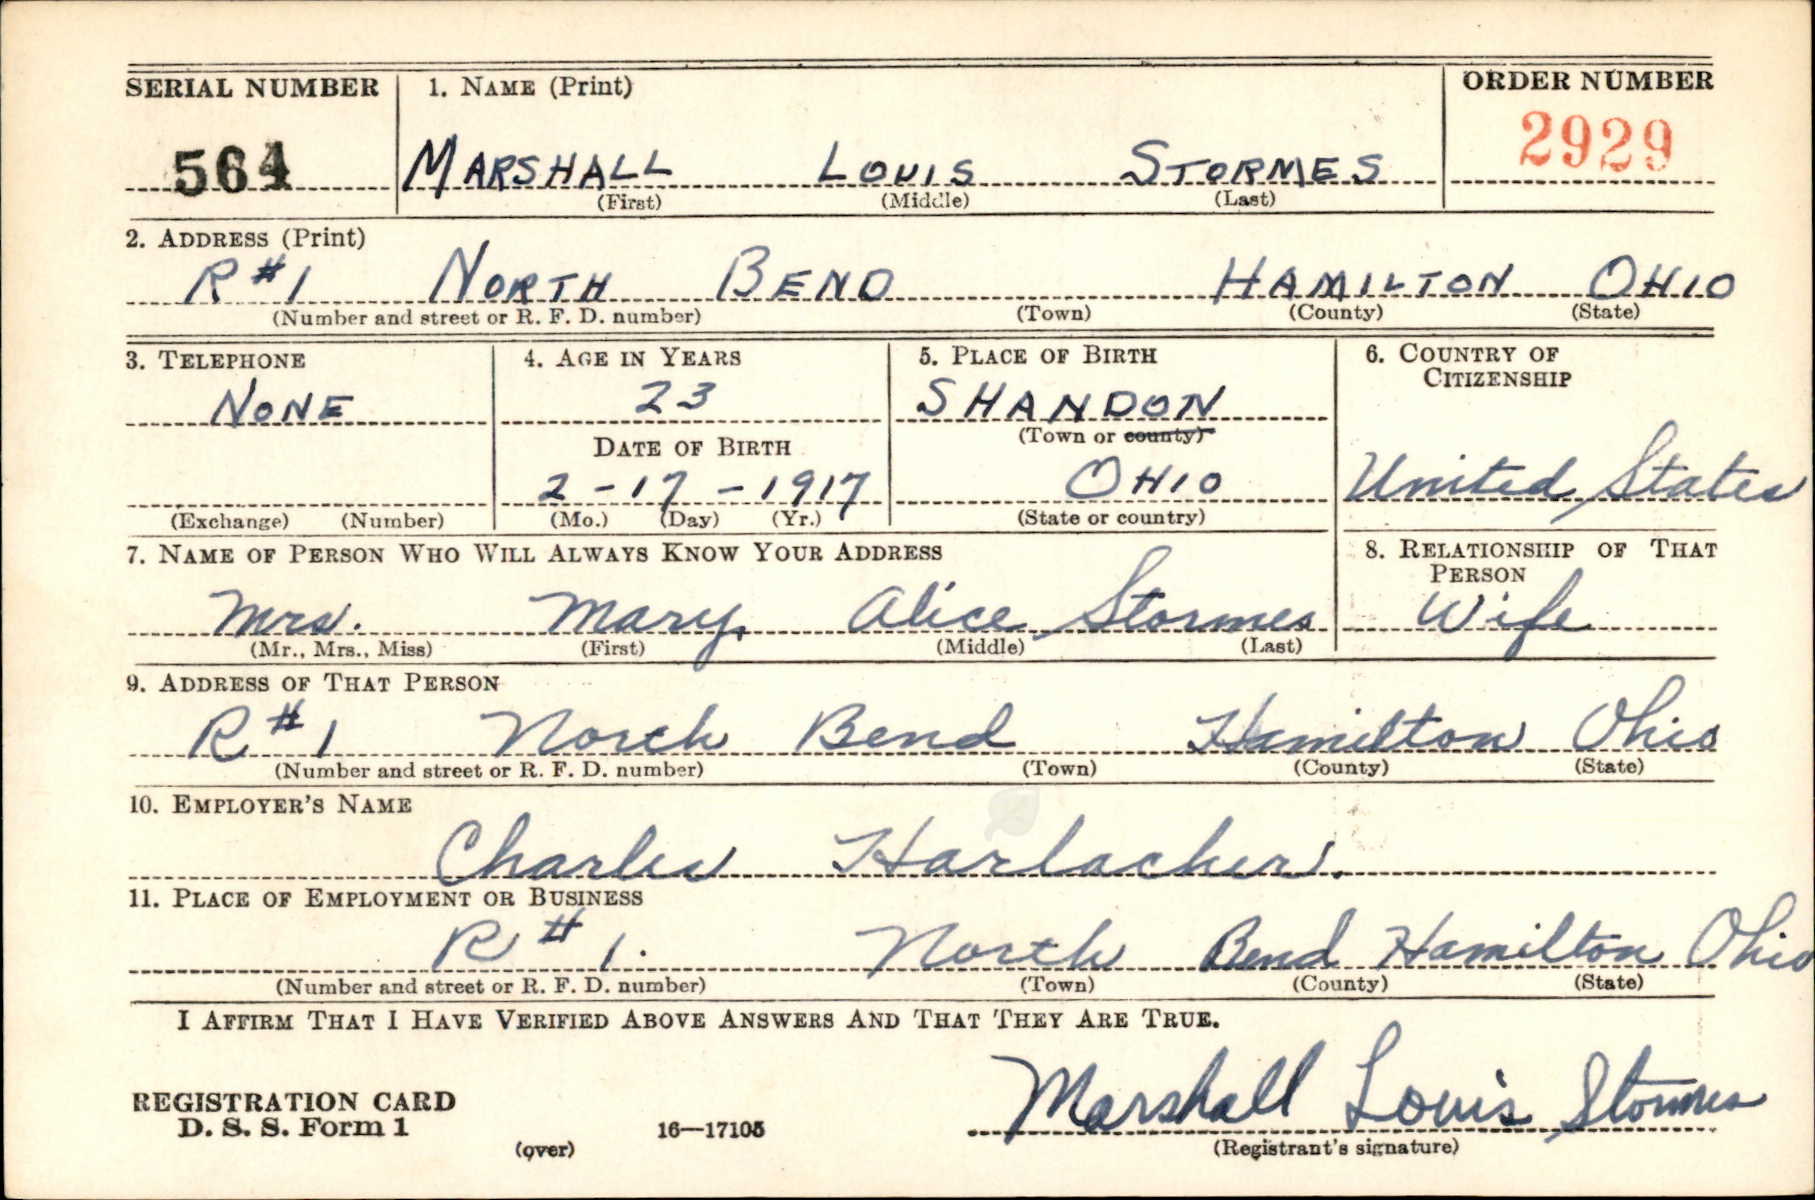 SERIAL NUMBER 1. NAME (Print) ORDER NUMBER
564 MARSHALL LOUIS STORMES 2929
(First) (Middle) (Last)
2. ADDRESS (Print)
R#1 NORTH BEND HAMILTON OHIO
(Number and street or R. F. D. number) (Town) (County) (State)
3. TELEPHONE 4. AGE IN YEARS 5. PLACE OF BIRTH 6. COUNTRY OF
CITIZENSHIP
NONE 23 SHANDON
(Town or county)
DATE OF BIRTH
2-17-1917 OHIO United States
(Exchange) (Number) (Mo.) (Day) (Yr.) (State or country)
7. NAME OF PERSON WHO WILL ALWAYS KNOW YOUR ADDRESS 8. RELATIONSHIP OF THAT
PERSON
Mrs. Mary Alice Stormes Wife
(Mr., Mrs., Miss) (First) (Middle) (Last)
9. ADDRESS OF THAT PERSON
R#1 North Bend Hamilton Ohio
(Number and street or R. F. D. number) (Town) (County) (State)
10. EMPLOYER'S NAME
Charles Harlacher.
11. PLACE OF EMPLOYMENT OR BUSINESS
R#1. North Bend Hamilton Ohio
(Number and street or R. F. D. number) (Town) (County) (State)
I AFFIRM THAT I HAVE VERIFIED ABOVE ANSWERS AND THAT THEY ARE TRUE.
Marshall Louis Stormes
REGISTRATION CARD
D. S. S. Form 1 16—17105
(over) (Registrant's signature)